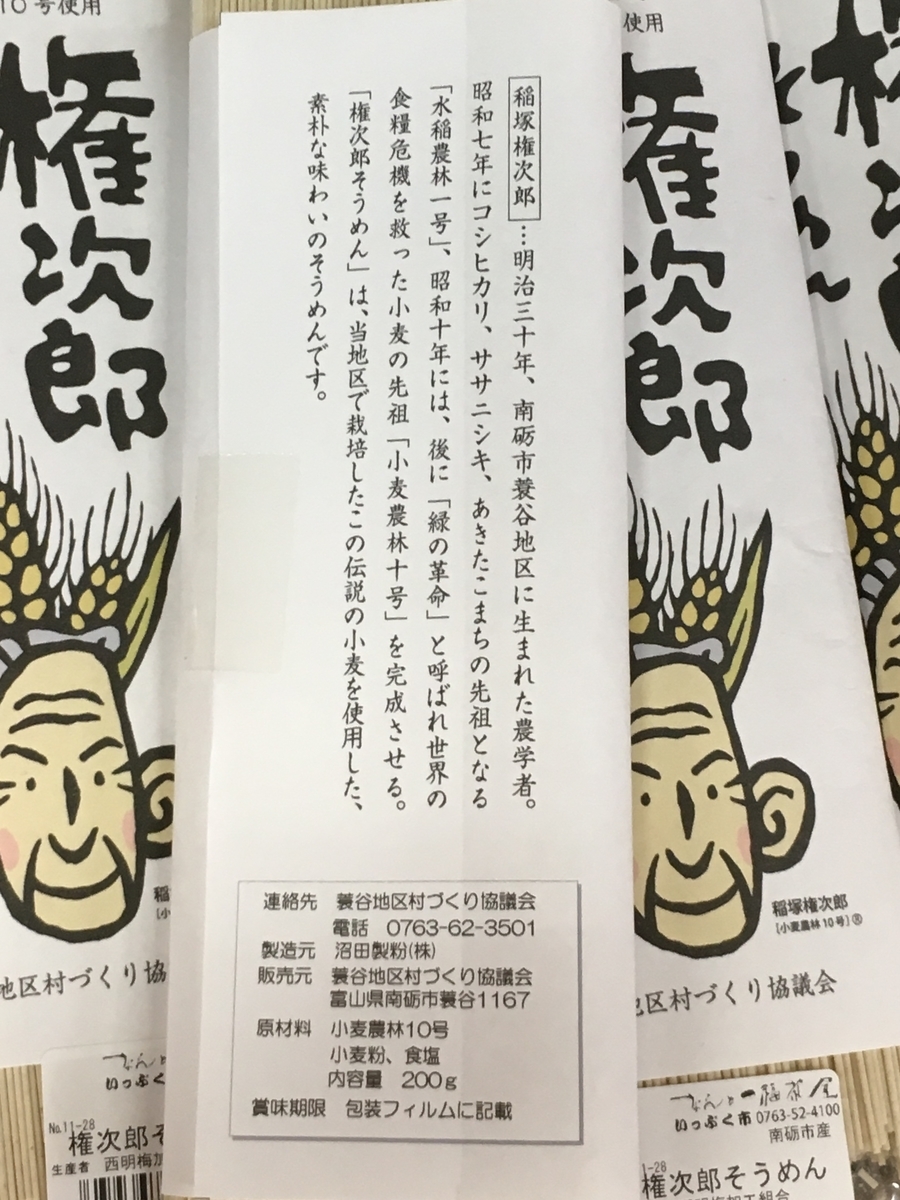 10号使用
権次郎
稲塚権次郎…明治三十年、南砺市蓑谷地区に生まれた農学者。
昭和七年にコシヒカリ、ササニシキ、あきたこまちの先祖となる
「水稲農林一号」、昭和十年には、後に「緑の革命」と呼ばれ世界の
食糧危機を救った小麦の先祖「小麦農林十号」を完成させる。
「権次郎そうめん」は、当地区で栽培したこの伝説の小麦を使用した、
素朴な味わいのそうめんです。
連絡先 蓑谷地区村づくり協議会
電話 0763-62-3501
製造元 沼田製粉(株)
販売元 蓑谷地区村づくり協議会
富山県南砺市蓑谷1167
原材料 小麦農林10号
小麦粉、食塩
内容量 200g
賞味期限 包装フィルムに記載
使用
権次郎
稲塚権次郎
[小麦農林10号]®
地区村づくり協議会
稲
[小
地区村づくり協
いっぷく
No.11-28
権次郎そ
生産者 西明梅加
なんと一福茶屋
いっぷく市 0763-52-4100
南砺市産
-28
権次郎そうめん
梅加工組合